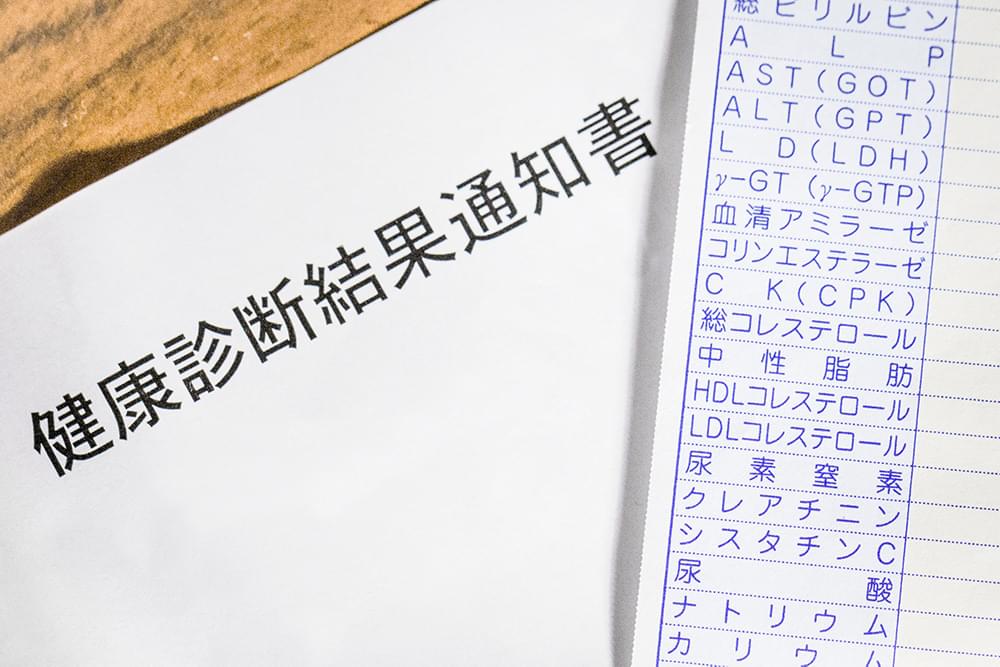 健康診断結果通知書
総ビリルビン
ALP
AST(GOT)
ALT(GPT)
LD(LDH)
γ-GT (γ-GTP)
血清アミラーゼ
コリンエステラーゼ
CK(CPK)
総コレステロール
中性脂肪
HDLコレステロール
LDLコレステロール
尿素窒素
クレアチニン
シスタチンC
尿酸
ナトリウム
カリウム